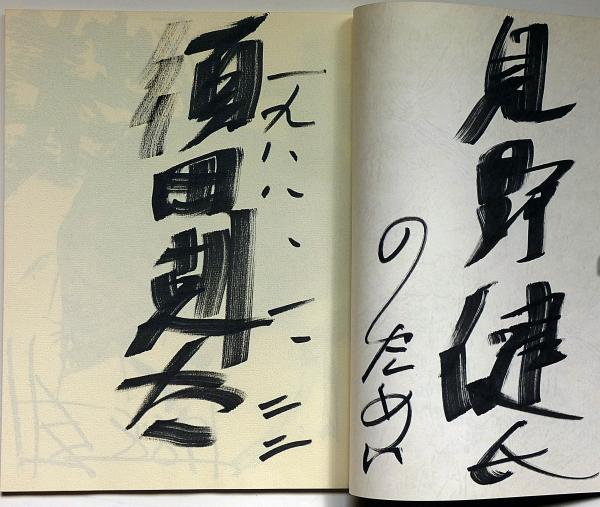 見野健氏
のために
一九八八、一、二二
須田剋太